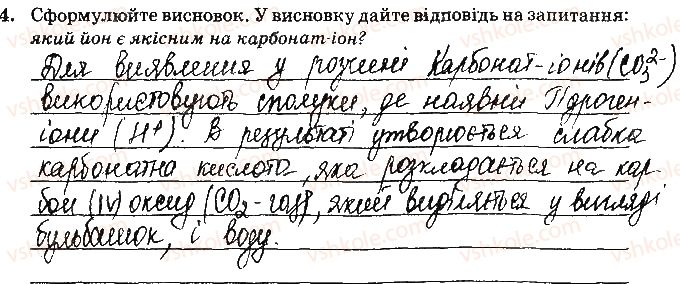 4. Сформулюйте висновок. У висновку дайте відповідь на запитання:
який йон є якісним на карбонат-іон?
Для виявлення у розчині Карбонат-іонів (CO₃²⁻)
використовують сполуки, де наявній Гідроген-
іони (H⁺). В результаті утворюється слабка
карбонатна кислота, яка розкладається на кар-
бон (IV) оксид (CO₂-газ), який виділяється у вигляді
бульбашок, і воду.